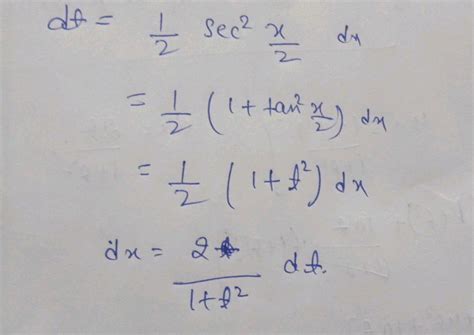 dt = 1/2 sec² x/2 dx
= 1/2 (1 + tan² x/2) dx
= 1/2 (1 + t²) dx
dx = 2/(1+t²) dt.